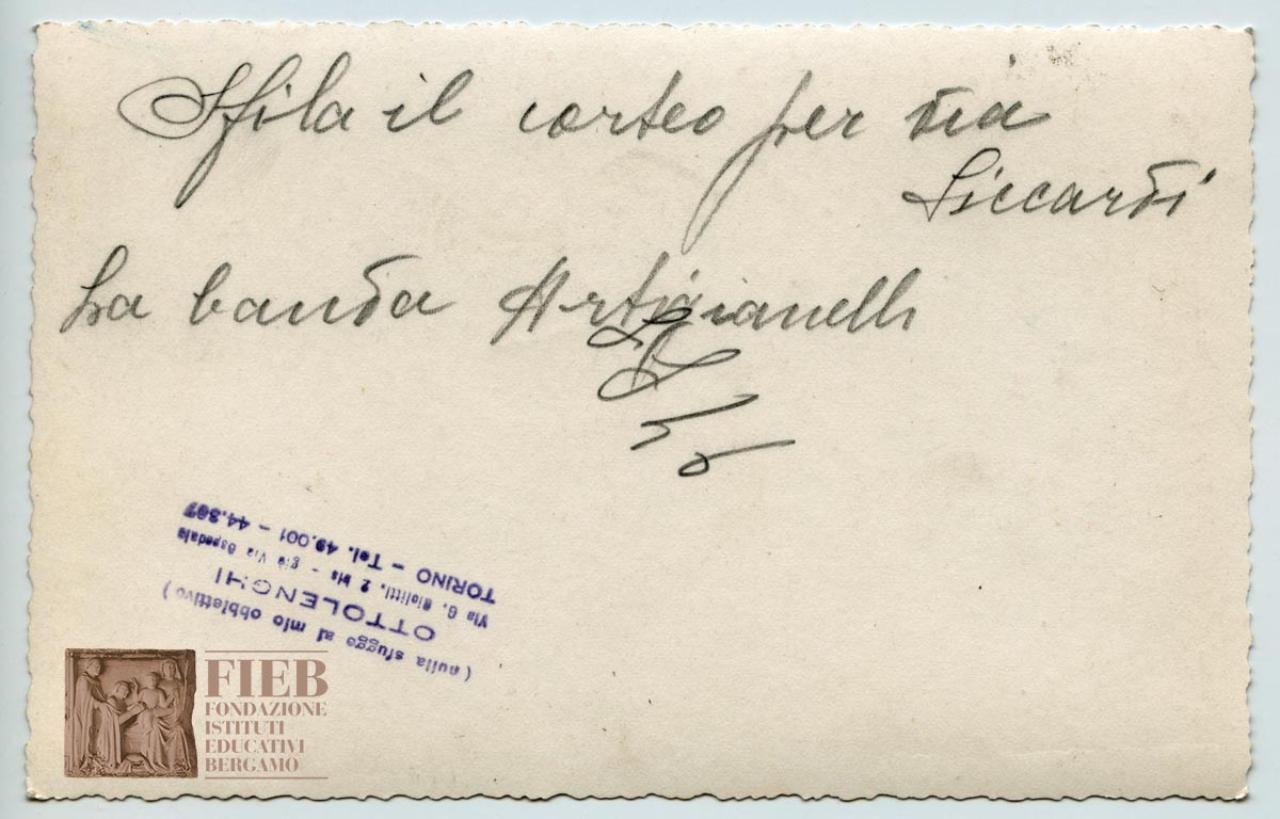 Sfila il corteo per via
Siccardi
La banda Artigianelli
(nulla sfugge al mio obbiettivo)
OTTOLENGHI
Via G. Giolitti, 2 bis - già Via Ospedale
TORINO - Tel. 49.001 - 44.367
FIEB
FONDAZIONE
ISTITUTI
EDUCATIVI
BERGAMO